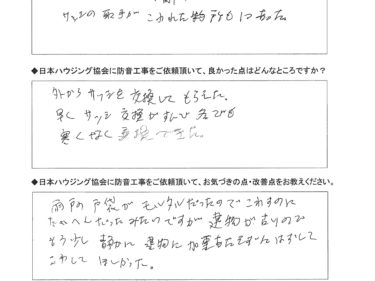 サッシの取手が こわれた物所も1つあった。
◆日本ハウジング協会に防音工事をご依頼頂いて、良かった点はどんなところですか？
外からサッシを交換してもらえた。
早く サッシ交換がすんで 冬でも
寒くなく 交換できた。
◆日本ハウジング協会に防音工事をご依頼頂いて、お気づきの点・改善点をお教えください。
雨戸の戸袋が モルタルだったので こわすのに
たいへんだったみたいですが 建物が古いので
もう少し 静かに 建物に 加重をかけずにはずして
こわして ほしかった。